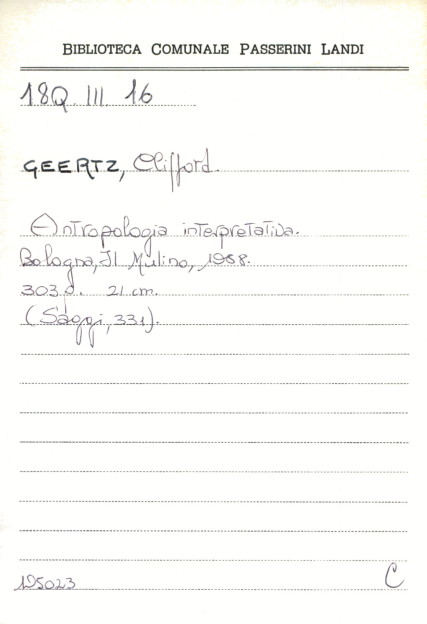 BIBLIOTECA COMUNALE PASSERINI LANDI
18Q. III. 16
GEERTZ, Clifford.
Antropologia interpretativa.
Bologna, Il Mulino, 1988.
303 p. 21 cm.
(Saggi, 331).
195023 C